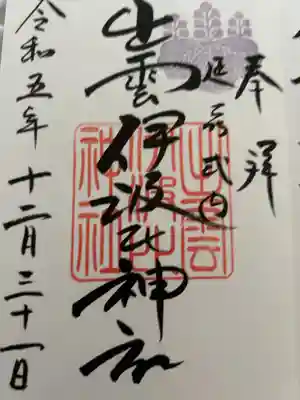 奉拝
延喜式内
出雲伊波比神社
令和五年十二月三十一日
出雲
伊波比
神社